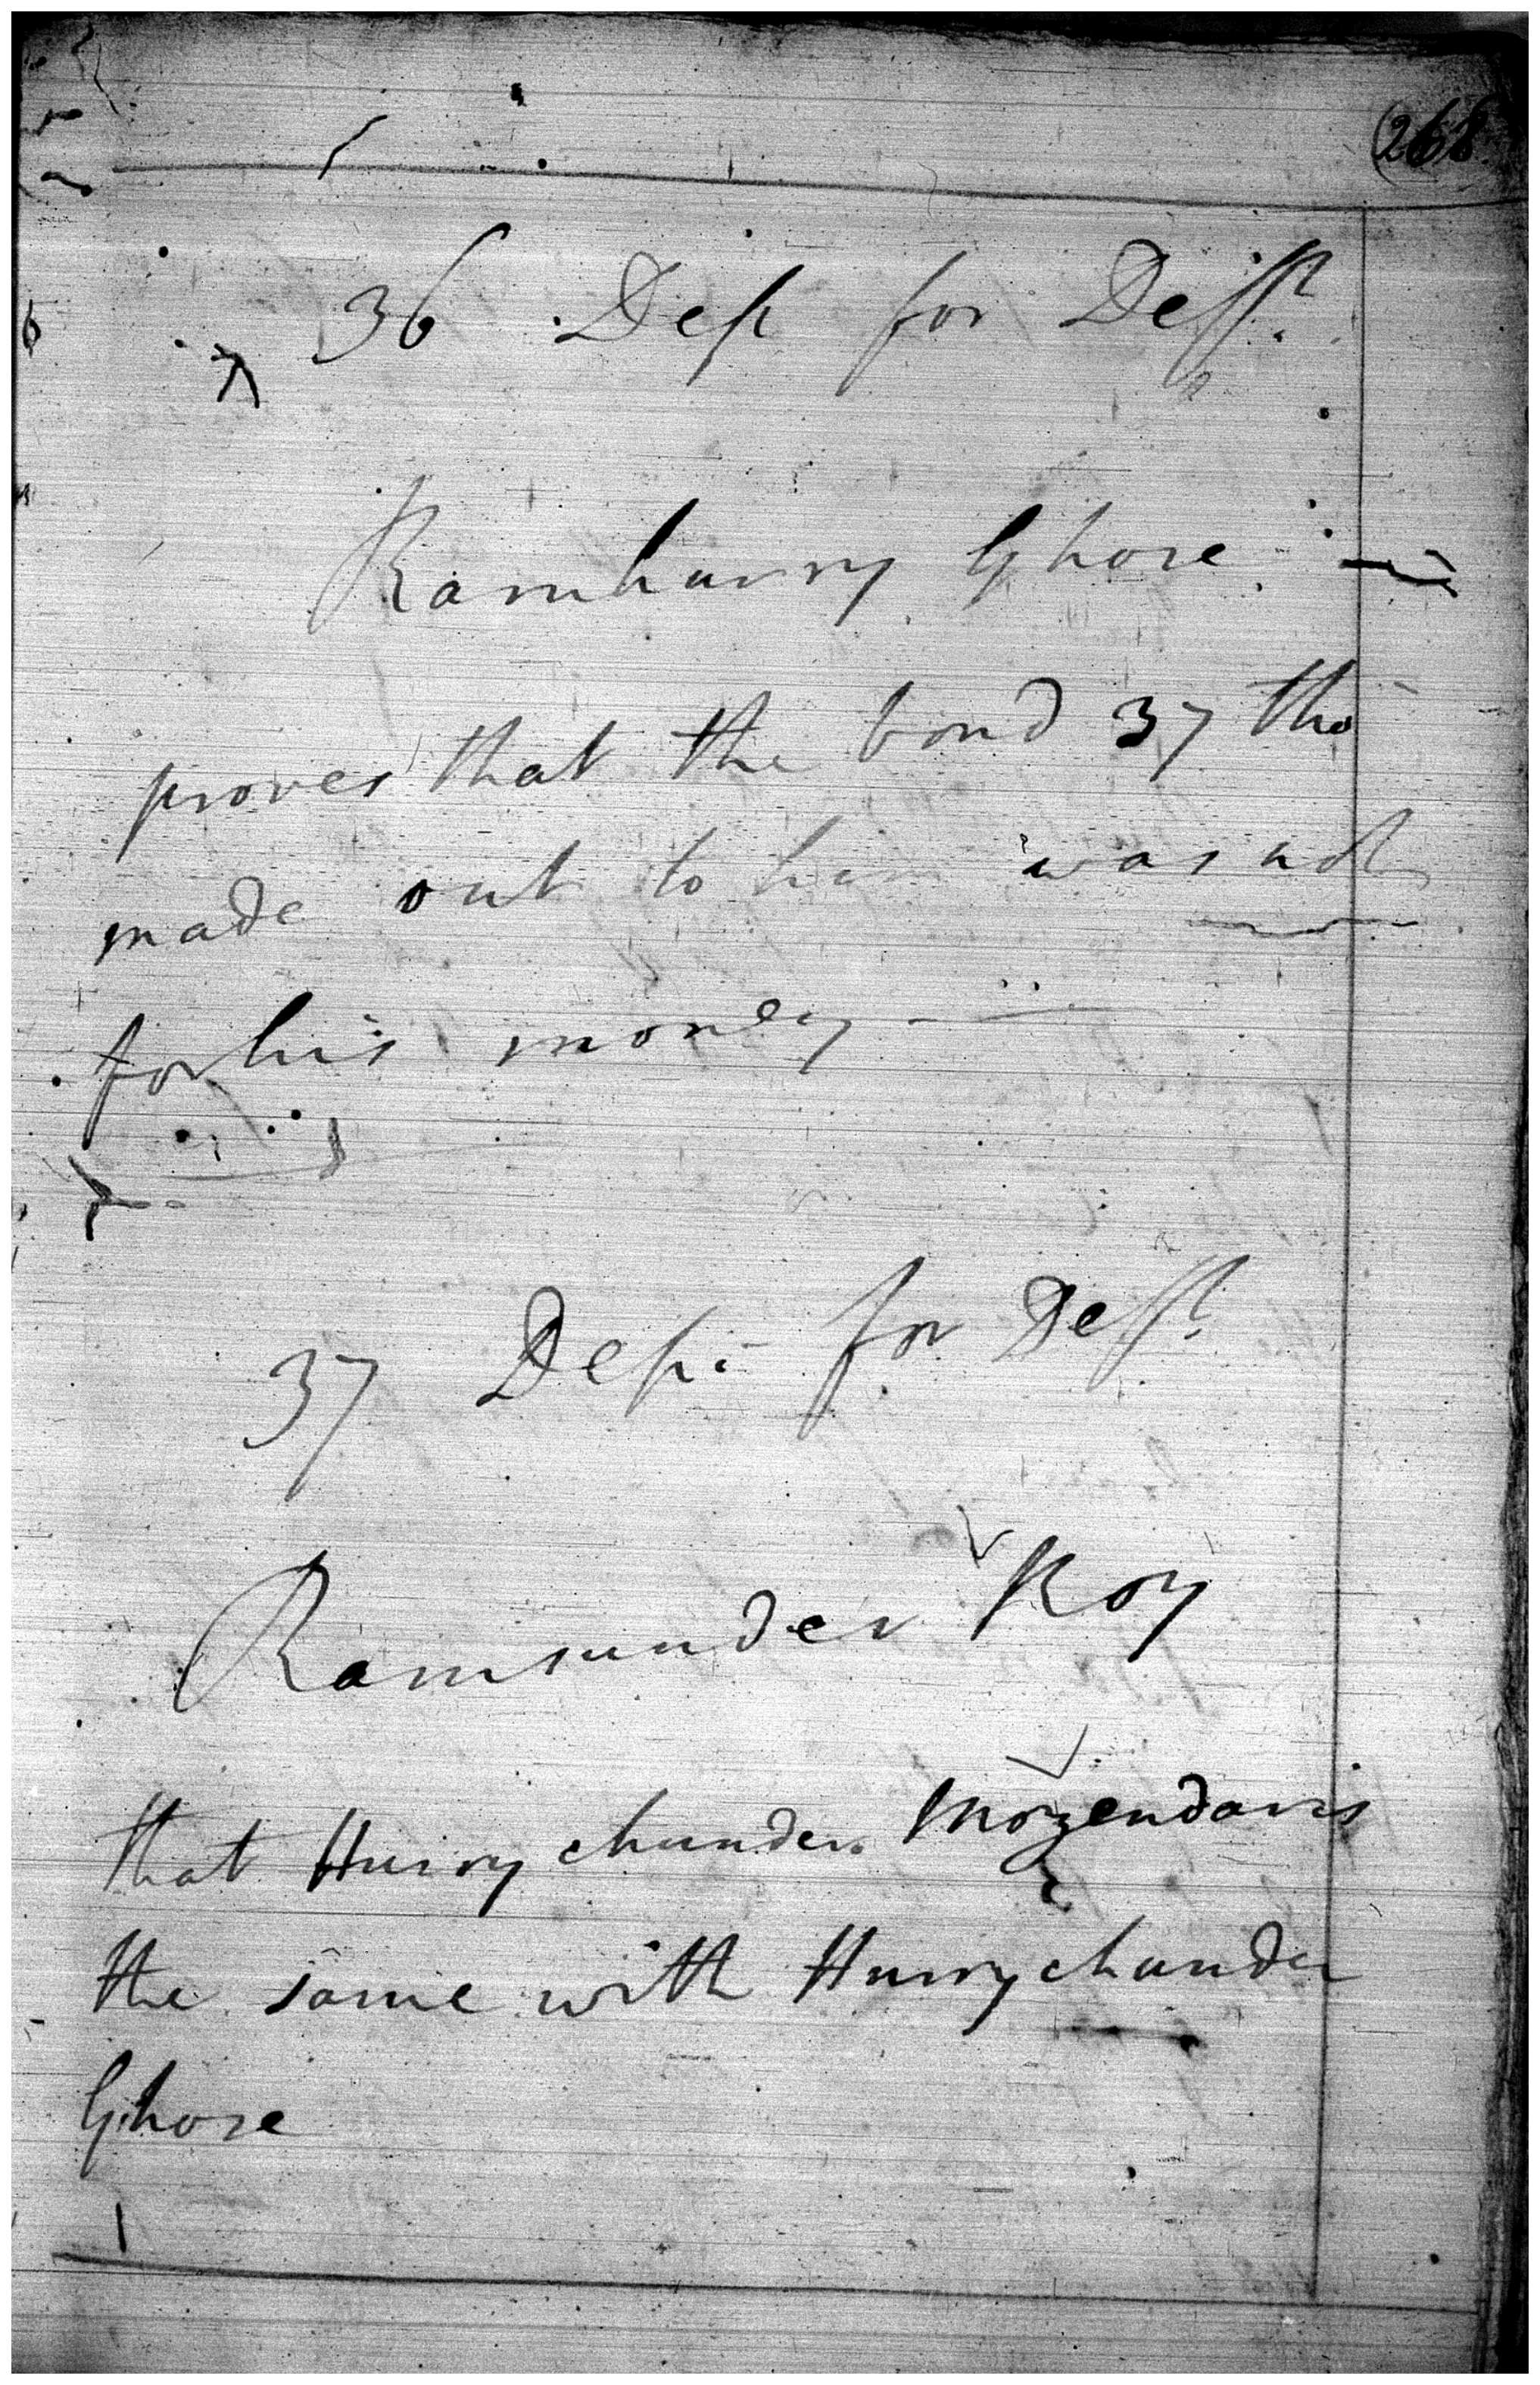 (268
36 Dep for Defft.
Ramhurry Ghose
proves that the bond 37 tho
made out to him was not
for his money -
37 Dep. for Defft.
Ramsunder Roy
that Hurrychunder Mozendar is
the same with Hurrychunder
Ghose